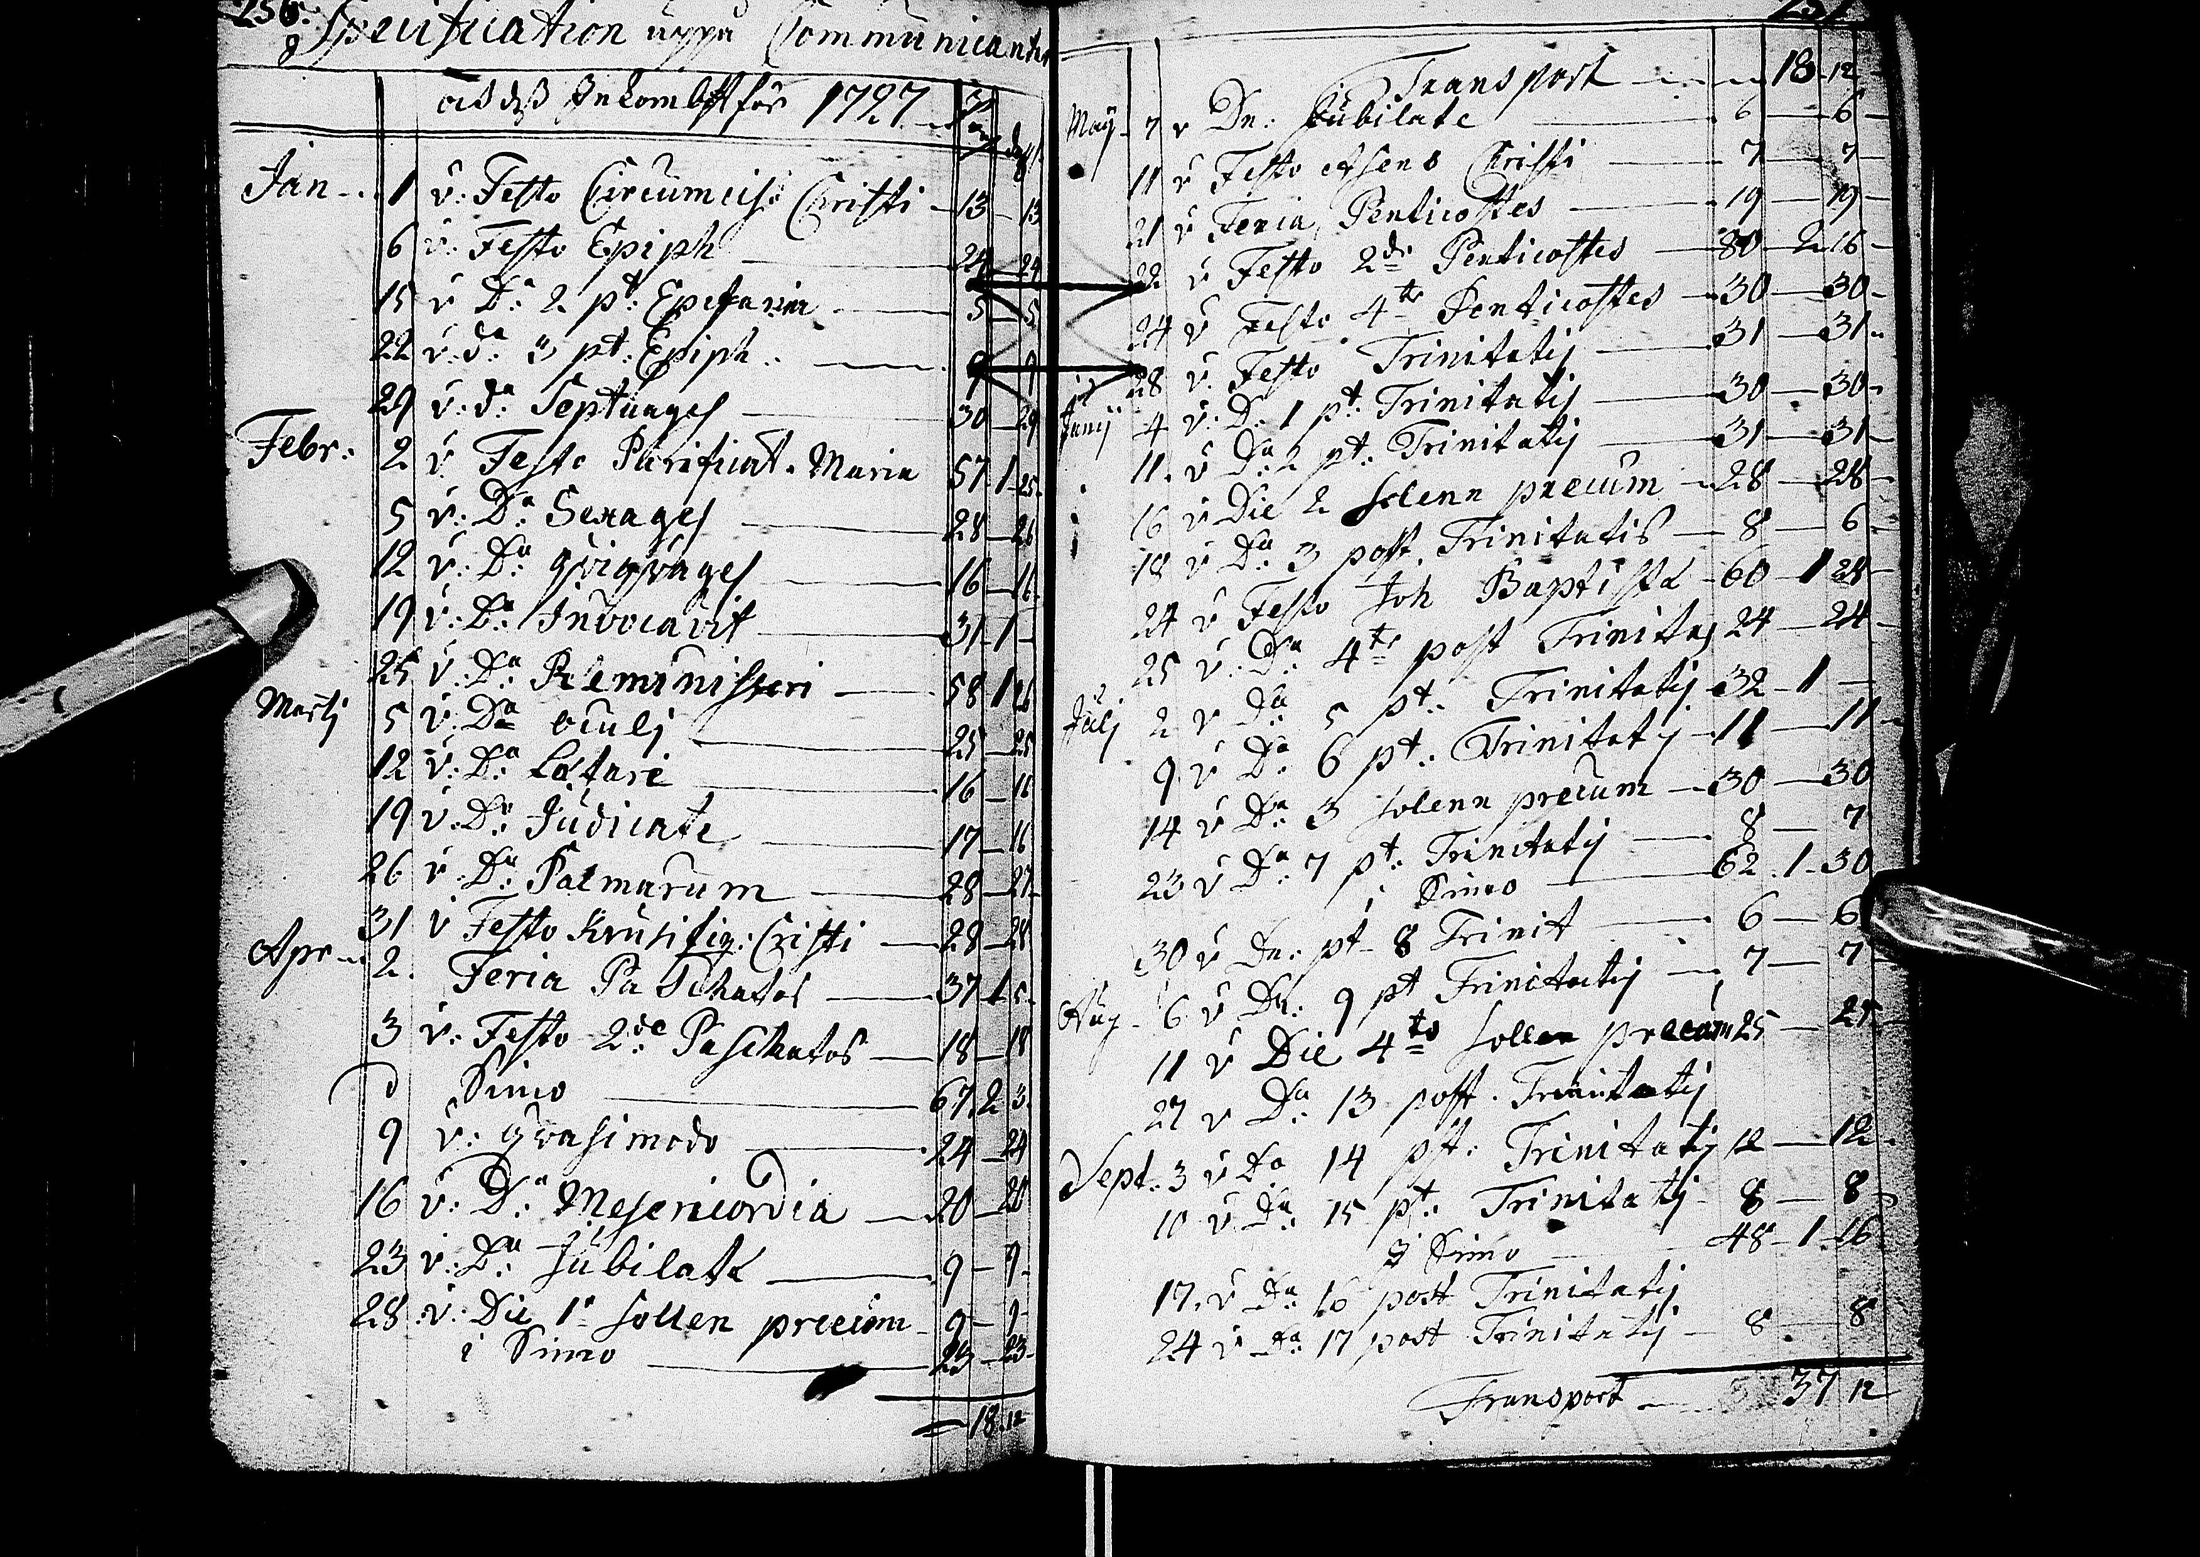 256.
Specification uppå Communicanter
och dess Inkombst för 1727
Jan 1 v: Festo Circumcis: Christi 13 13
6 v: Festo Epiph 24 24
15 v Da 2 pt: Epifania 5 5
22 v: da 3 pt: Epiph: 9 9
29 v: da: Septuages 30 29
Febr: 2 v Festo Purificat. Maria 57 1 25
5 v: Da: Sexages 28 26
12 v: Da: qviqvages 16 16
19 v: Da: Invocavit 31 1
25 v: Da Reminisceri 58 1 26
Martj 5 v: Da oculj 25 25
12 v: Da: Lætare 16 16
19 v: Da: Judicate 17 16
26 v: Da: Palmarum 28 27
31 v Festo Krusifig: Cristi 28 28
Apr 2. Feria Paschatos 37 1 5
3 v: Festo 2de Paschatos 18 18
Simo 67 2 3
9 v: qvasimodo 24 24
16 v: Da: Mesericordia 20 20
23 v: Da Jubilate 9 9
28 v: Die 1a sollen precum 9 9
i Simo 23 23
18 12
Transport 18 12
May 7 v Dn: Jubilate 6 6
11 v Festo Asens Christi 7 7
21 v Feria Penticostes 19 19
22 v Festo 2de Penticostes 80 2 16
24 v Festo 4te Penticostes 30 30
28 v. Festo Trinitatij 31 31
Junij 4 v: D: 1 pt: Trinitatij 30 30
11. v Da: 2 pt: Trinitatij 31 31
16 v Die 2 solenn precum 28 28
18 v Da: 3 post. Trinitatis 8 6
24 v Festo Joh Baptista 60 1 28
25 v: Da: 4te post Trinitaj 24 24
Julj 2 v Da 5 pt: Trinitatij 32 1
9 v Da 6 pt: Trinitatij 11 11
14 v Da 3 solenn precum 30 30
23 v Da: 7 pt: Trinitatij 8 7
i Simo 62 1 30
30 v Dn: pt 8 Trinit 6 6
Aug 6 v Dn: 9 pt Trinitatij 7 7
11 v Die 4to sollen precum 25 25
27 v Da: 13 post. Trinitatij
Sept. 3 v Da 14 pst: Trinitatij 12 12
10 v Da: 15 pt: Trinitatij 8 8
i Simo 48 1 16
17. v Da: 16 post Trinitatij
24 v Da 17 post Trinitatij 8 8
Transport 37 12